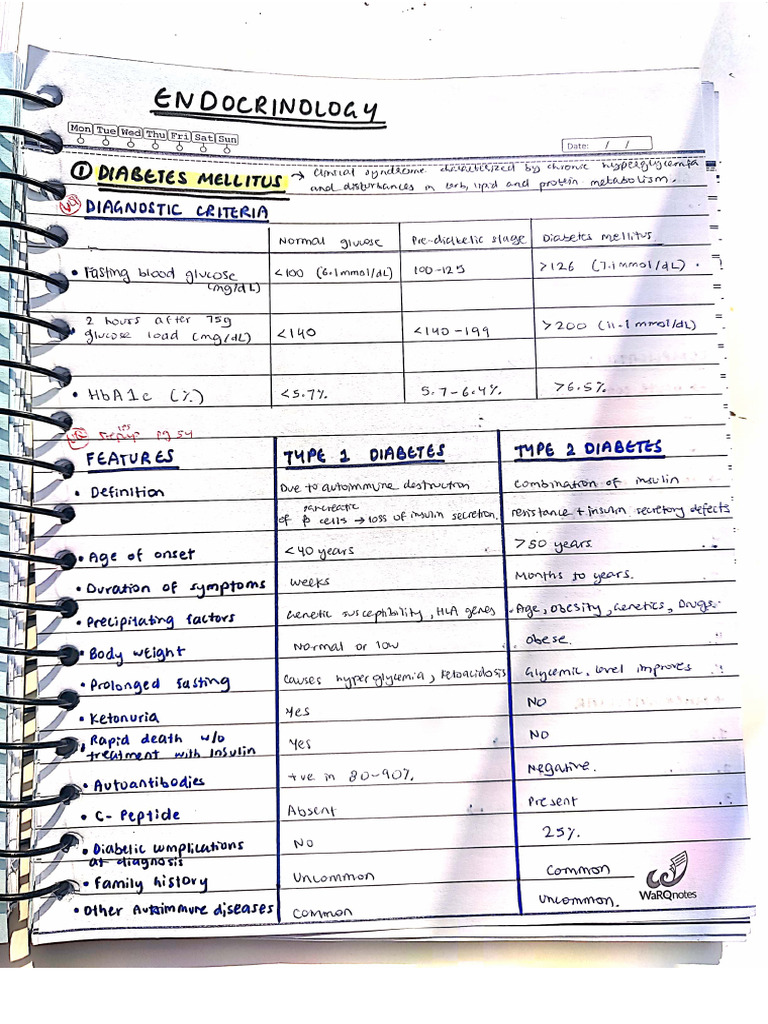 ENDOCRINOLOGY
Mon Tue Wed Thu Fri Sat Sun
Date: / /
① DIABETES MELLITUS → clinical syndrome characterized by chronic hyperglycemia
and disturbances in carb, lipid and protein metabolism.
DIAGNOSTIC CRITERIA
Normal glucose Pre-diabetic stage Diabetes mellitus
• Fasting blood glucose <100 (6.1mmol/dL) 100-125 >126 (7.1mmol/dL)
(mg/dL)
2 hours after 75g
• glucose load (mg/dL) <140 <140-199 >200 (11.1 mmol/dL)
• HbA1c (%) <5.7% 5.7-6.4% >6.5%
pg 54
FEATURES TYPE 1 DIABETES TYPE 2 DIABETES
• Definition Due to autoimmune destruction combination of insulin
of pancreatic β cells → loss of insulin secretion. resistance + insulin secretory defects
• Age of onset <40 years >50 years
• Duration of symptoms weeks Months to years.
• Precipitating factors Genetic susceptibility, HLA genes Age, obesity, Genetics, Drugs.
• Body weight Normal or low obese.
• Prolonged fasting causes hyperglycemia, ketoacidosis Glycemic level improves
• Ketonuria Yes NO
• Rapid death w/o
treatment with Insulin Yes NO
• Autoantibodies +ve in 80-90% Negative.
• C-Peptide Absent Present
• Diabetic complications
at diagnosis NO 25%
• Family history Uncommon Common
• Other Autoimmune diseases Common Uncommon.
WaRQnotes